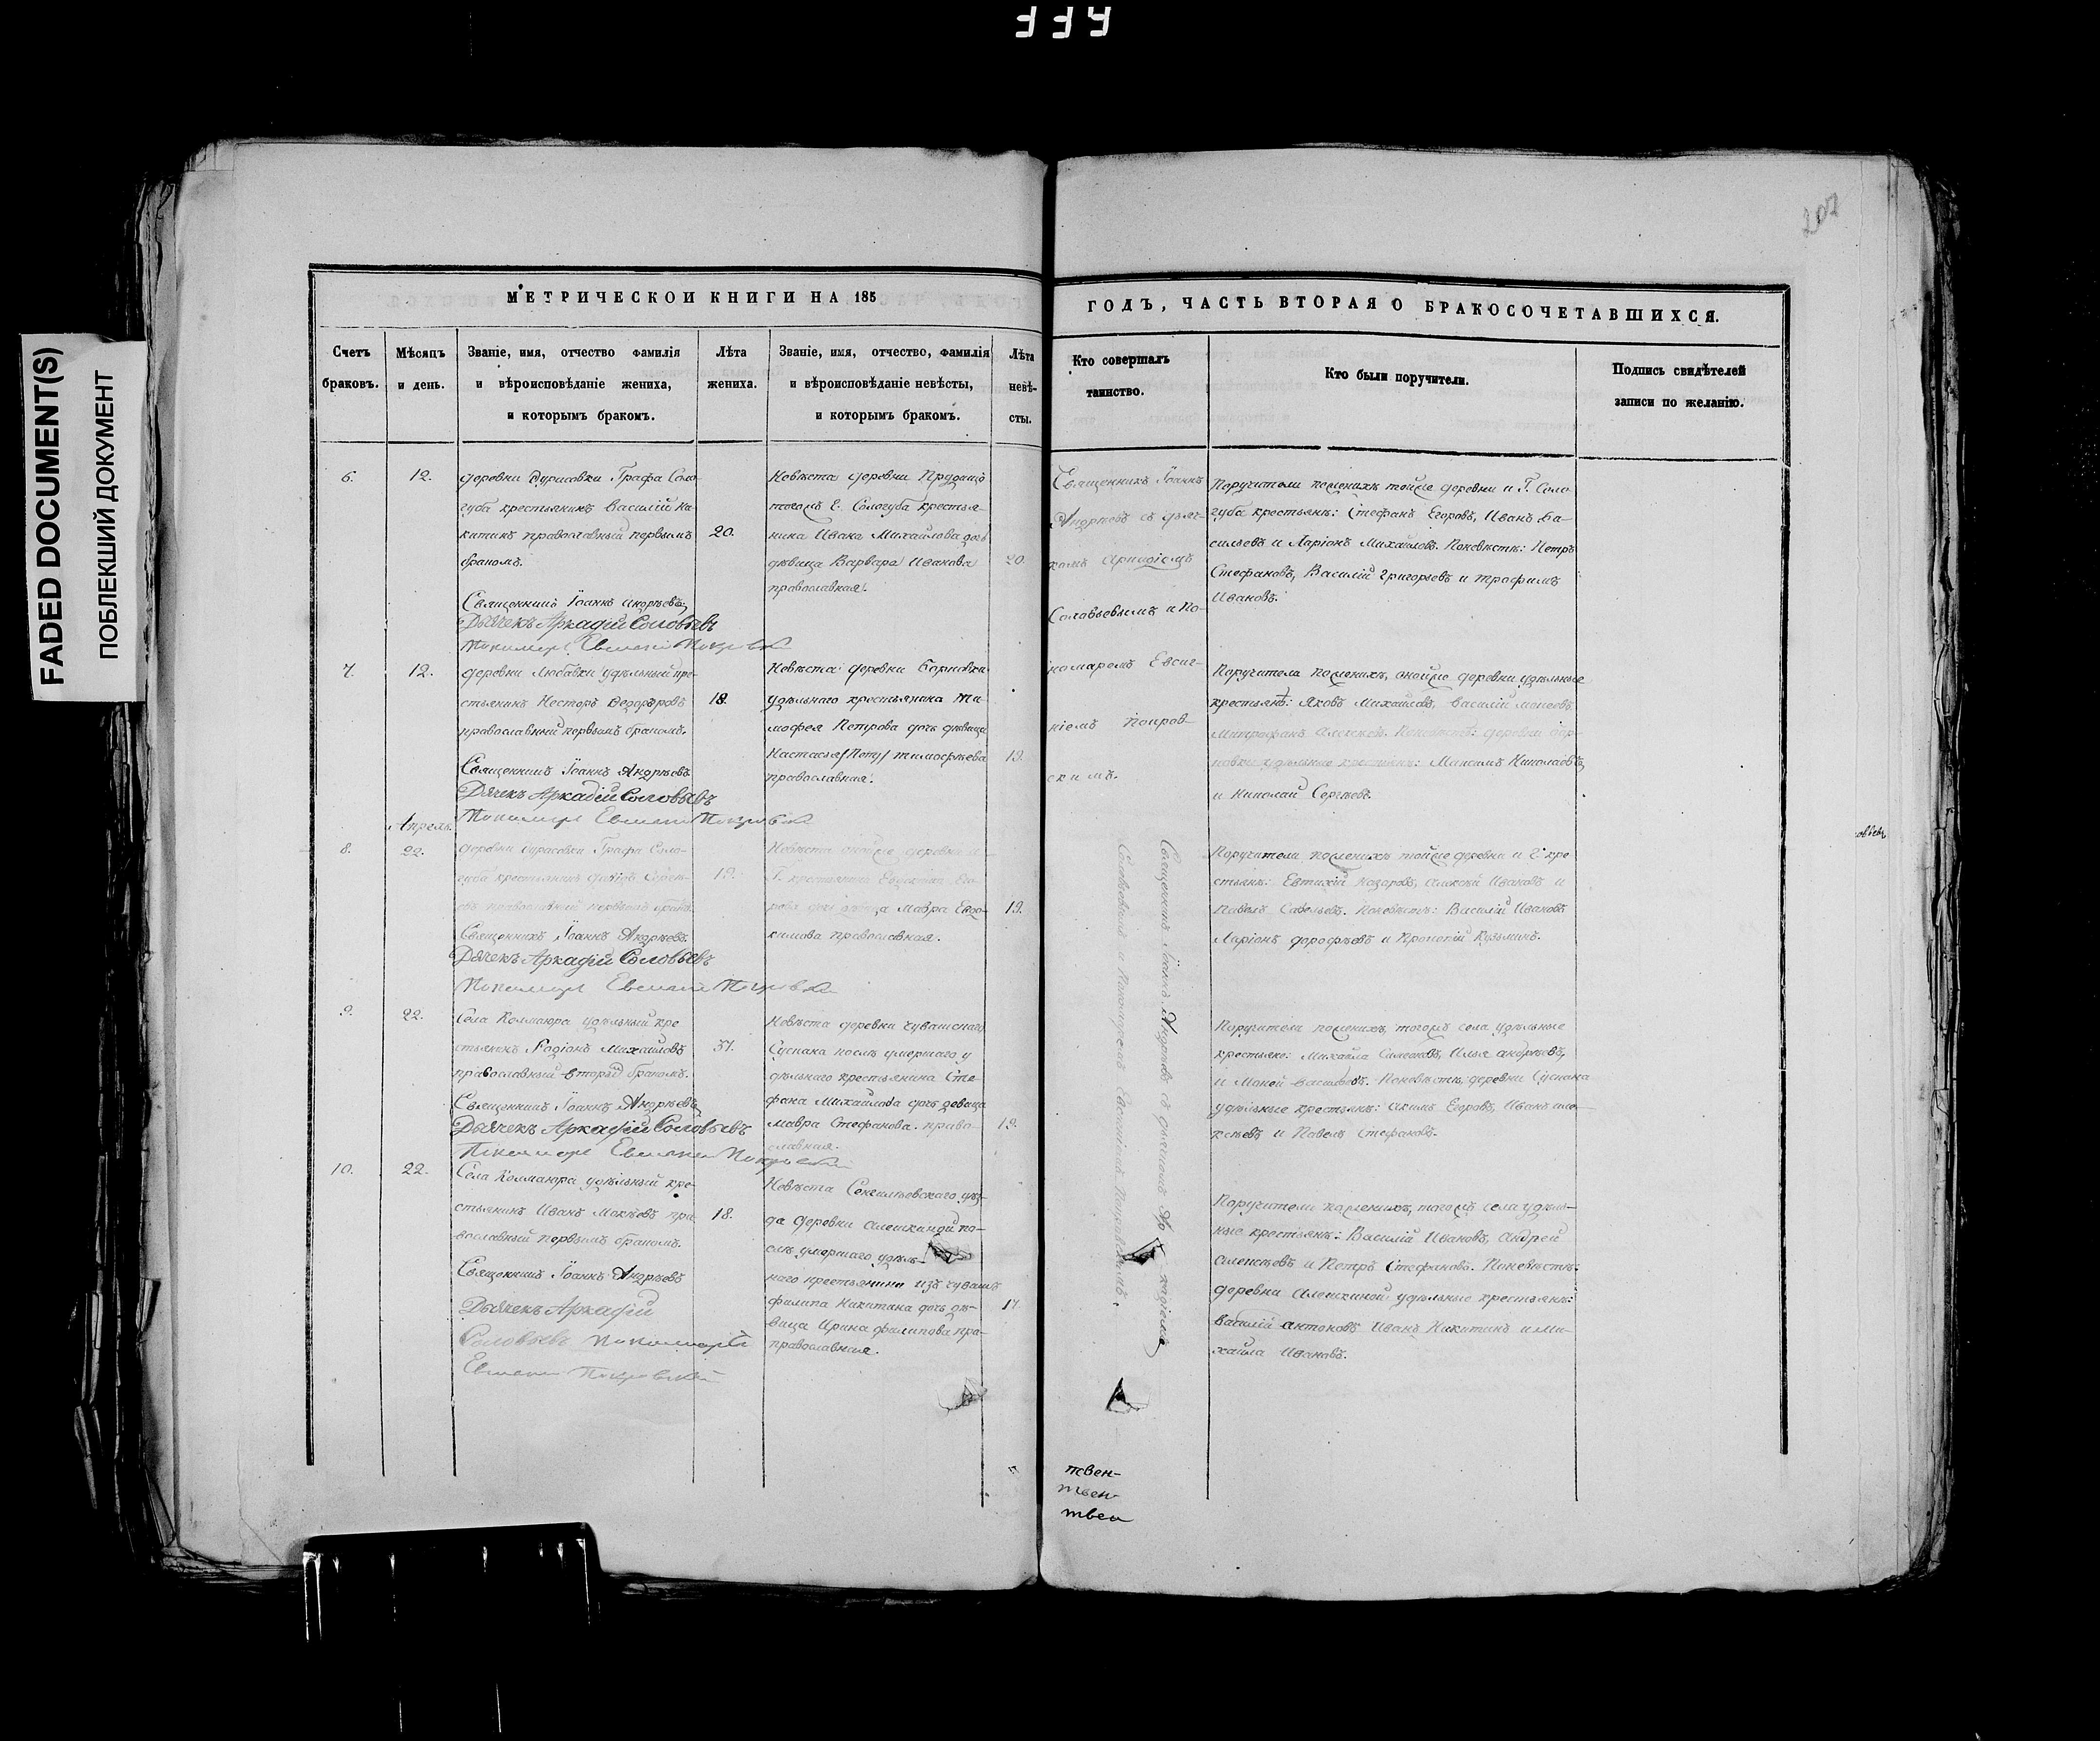 339
FADED DOCUMENT(S)
ПОБЛЕКШИЙ ДОКУМЕНТ
207
МЕТРИЧЕСКОЙ КНИГИ НА 185
ГОДЪ, ЧАСТЬ ВТОРАЯ О БРАКОСОЧЕТАВШИХСЯ.
Счетъ браковъ.
Мѣсяцъ и день.
Званіе, имя, отчество фамилія
и вѣроисповѣданіе жениха,
и которымъ бракомъ.
Лѣта жениха.
Званіе, имя, отчество, фамилія
и вѣроисповѣданіе невѣсты,
и которымъ бракомъ.
Лѣта невѣ-
сты.
Кто совершалъ
таинство.
Кто были поручители.
Подпись свидѣтелей
записи по желанію.
6.
12.
деревни Графа Соло-
губа крестьянинъ Василій Ни-
китинъ православный первымъ
бракомъ.
Священникъ Іоаннъ Андрѣевъ
Дьячекъ Аркадій Соловьевъ
Пономарь Евгеній Покровскій
20.
Невѣста деревни
тогожъ Г. Сологуба крестья-
нина Ивана Михайлова дочь
дѣвица Варвара Иванова
православная.
20.
Священникъ Іоаннъ
Андрѣевъ съ дьяч-
комъ Аркадіемъ
Соловьевымъ и По-
номаремъ
Покров-
скимъ.
Поручители по женихѣ тойже деревни и Г. Соло
губа крестьяне: Стефанъ Егоровъ, Иванъ Ва-
сильевъ и Ларіонъ Михайловъ. По невѣстѣ: Петръ
Стефановъ, Василій Григорьевъ и Трофимъ
Ивановъ.
7.
12.
деревни Любавки удѣльный кре-
стьянинъ Несторъ Ѳедоровъ
православный первымъ бракомъ.
Священникъ Іоаннъ Андрѣевъ
Дячекъ Аркадій Соловьевъ
Пономарь Евгеній Покровскій
18.
Невѣста деревни Борновки
удѣльнаго крестьянина Ти-
мофея Петрова дочь дѣвица
Настасья Тимофѣева
православная.
19.
Поручители по женихѣ, оной же деревни удѣльные
крестьяне: Яковъ Михайловъ, Василій Моисеевъ
Митрофанъ Алексѣевъ. По невѣстѣ: деревни Бор-
новки удѣльные крестьяне: Максимъ Николаевъ
и Николай Сергѣевъ.
Апрель.
8.
22.
деревни Графа Соло-
губа крестьянинъ
православный первымъ бракомъ
Священникъ Іоаннъ Андрѣевъ.
Дьячекъ Аркадій Соловьевъ
Пономарь Евгеній Покровскій
19.
Невѣста онойже деревни и
Г. крестьянина Евдокима Его-
рова дочь дѣвица Мавра Евдо-
кимова православная.
19.
Поручители по женихѣ тойже деревни и Г. кре
стьяне: Евтихій Назаровъ, Алексѣй Ивановъ и
Павелъ Савельевъ. По невѣстѣ: Василій Ивановъ
Ларіонъ Дорофѣевъ и Прокопій Кузьминъ.
9.
22.
Села Коммаюра удѣльный кре
стьянинъ Родіонъ Михайловъ
православный вторымъ бракомъ.
Священникъ Іоаннъ Андрѣевъ
Дьячекъ Аркадій Соловьевъ
Пономарь Евгеній Покровскій
37.
Невѣста деревни чувашскаго
Сускана послѣ умершаго у
дѣльнаго крестьянина Сте
фана Михайлова дочь девица
Мавра Стефанова. право-
славная.
19.
Поручители по женихѣ, тогожъ села удѣльные
крестьяне: Михайла Симеоновъ, Илья Андрѣевъ,
и Мокей Васильевъ. По невѣстѣ, деревни Сускана
удѣльные крестьяне: Акимъ Егоровъ, Иванъ Але-
ксѣевъ и Павелъ Стефановъ.
10.
22.
Села Коммаюра удѣльный кре-
стьянинъ Иванъ Мокѣевъ пра
вославный первымъ бракомъ.
Священникъ Іоаннъ Андрѣевъ
Дьячекъ Аркадій
Соловьевъ Пономарь
Евгеній Покровскій
18.
Невѣста Сенгилѣевскаго уѣз-
да деревни Алешкиной по-
слѣ умершаго удѣль-
наго крестьянина изъ чувашъ
Филипа Никитина дочь дѣ-
вица Ирина Филипова пра-
православная.
17.
Священникъ Іоаннъ Андрѣевъ съ дьячкомъ Аркадіемъ
Соловьевымъ и Пономаремъ Покровскимъ.
Поручители по женихѣ, тогожъ села удѣль-
ные крестьяне: Василій Ивановъ, Андрей
Алексѣевъ и Петръ Стефановъ. По невѣстѣ:
деревни Алешкиной удѣльные крестьяне:
Василій Антоновъ Иванъ Никитинъ и Ми-
хайла Ивановъ.
твен-
твен-
твен